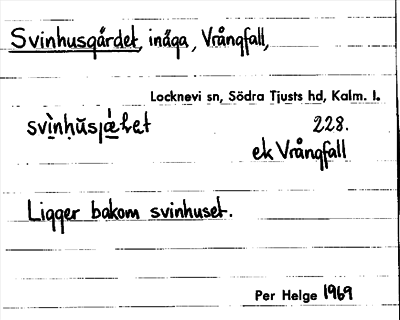 Svinhusgärdet, inäga, Vrångfall,
Locknevi sn, Södra Tjusts hd, Kalm. l.
svìnhùsjæ̀ḷet 228.
ek Vrångfall
Ligger bakom svinhuset.
Per Helge 1969